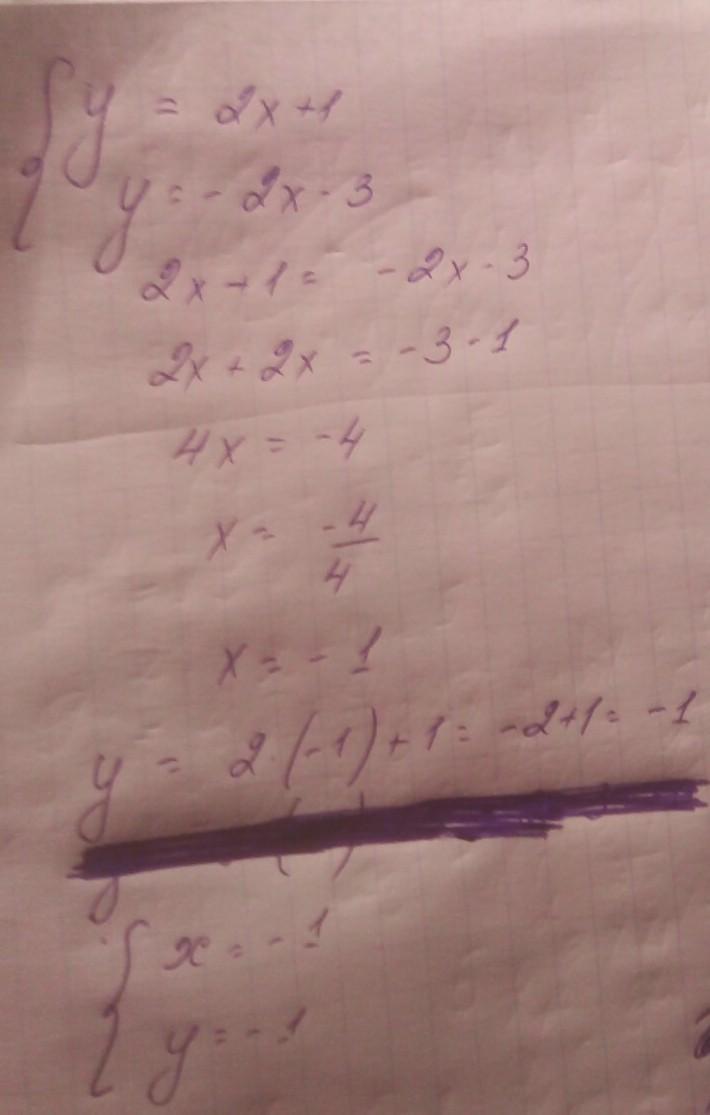 { y = 2x+1
y = - 2x - 3
2x + 1 = - 2x - 3
2x + 2x = -3 - 1
4x = -4
x = -4/4
x = - 1
y = 2·(-1)+1 = -2+1 = -1
{ x = - 1
y = - 1